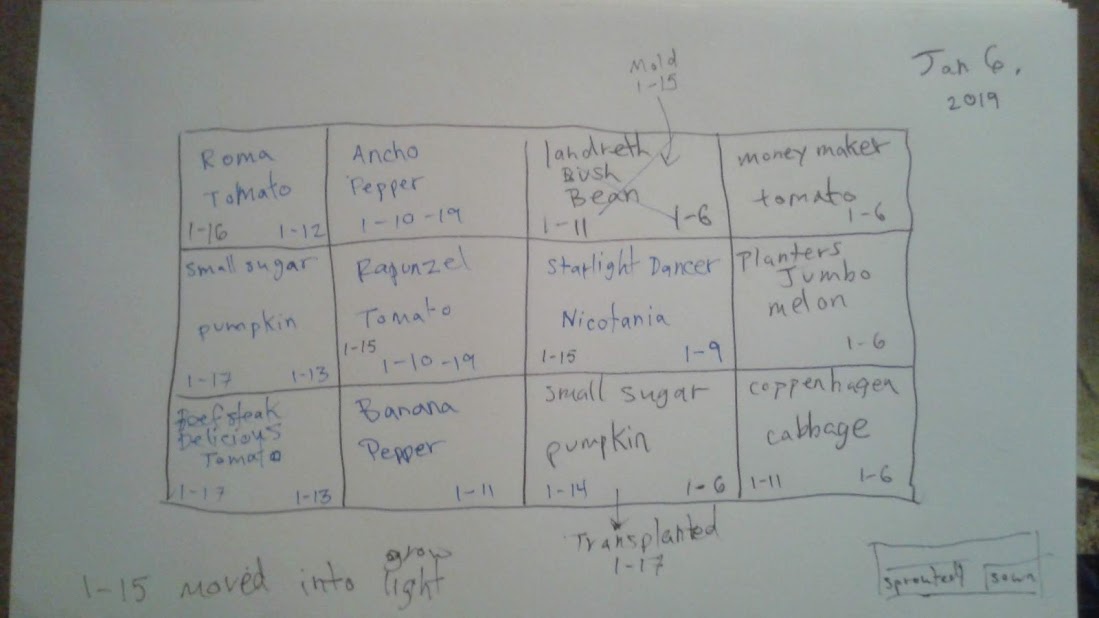 Jan 6,
2019
Mold
1-15
Roma
Tomato
1-16 1-12
Ancho
Pepper
1-10-19
landreth
Bush
Bean
1-11 1-6
money maker
tomato
1-6
small sugar
pumpkin
1-17 1-13
Rapunzel
Tomato
1-15
1-10-19
Starlight Dancer
Nicotania
1-15 1-9
Planters
Jumbo
melon
1-6
Beefsteak
Delicious
Tomato
1-17 1-13
Banana
Pepper
1-11
small sugar
pumpkin
1-14 1-6
coppenhagen
cabbage
1-11 1-6
Transplanted
1-17
1-15 moved into grow light
sprouted sown